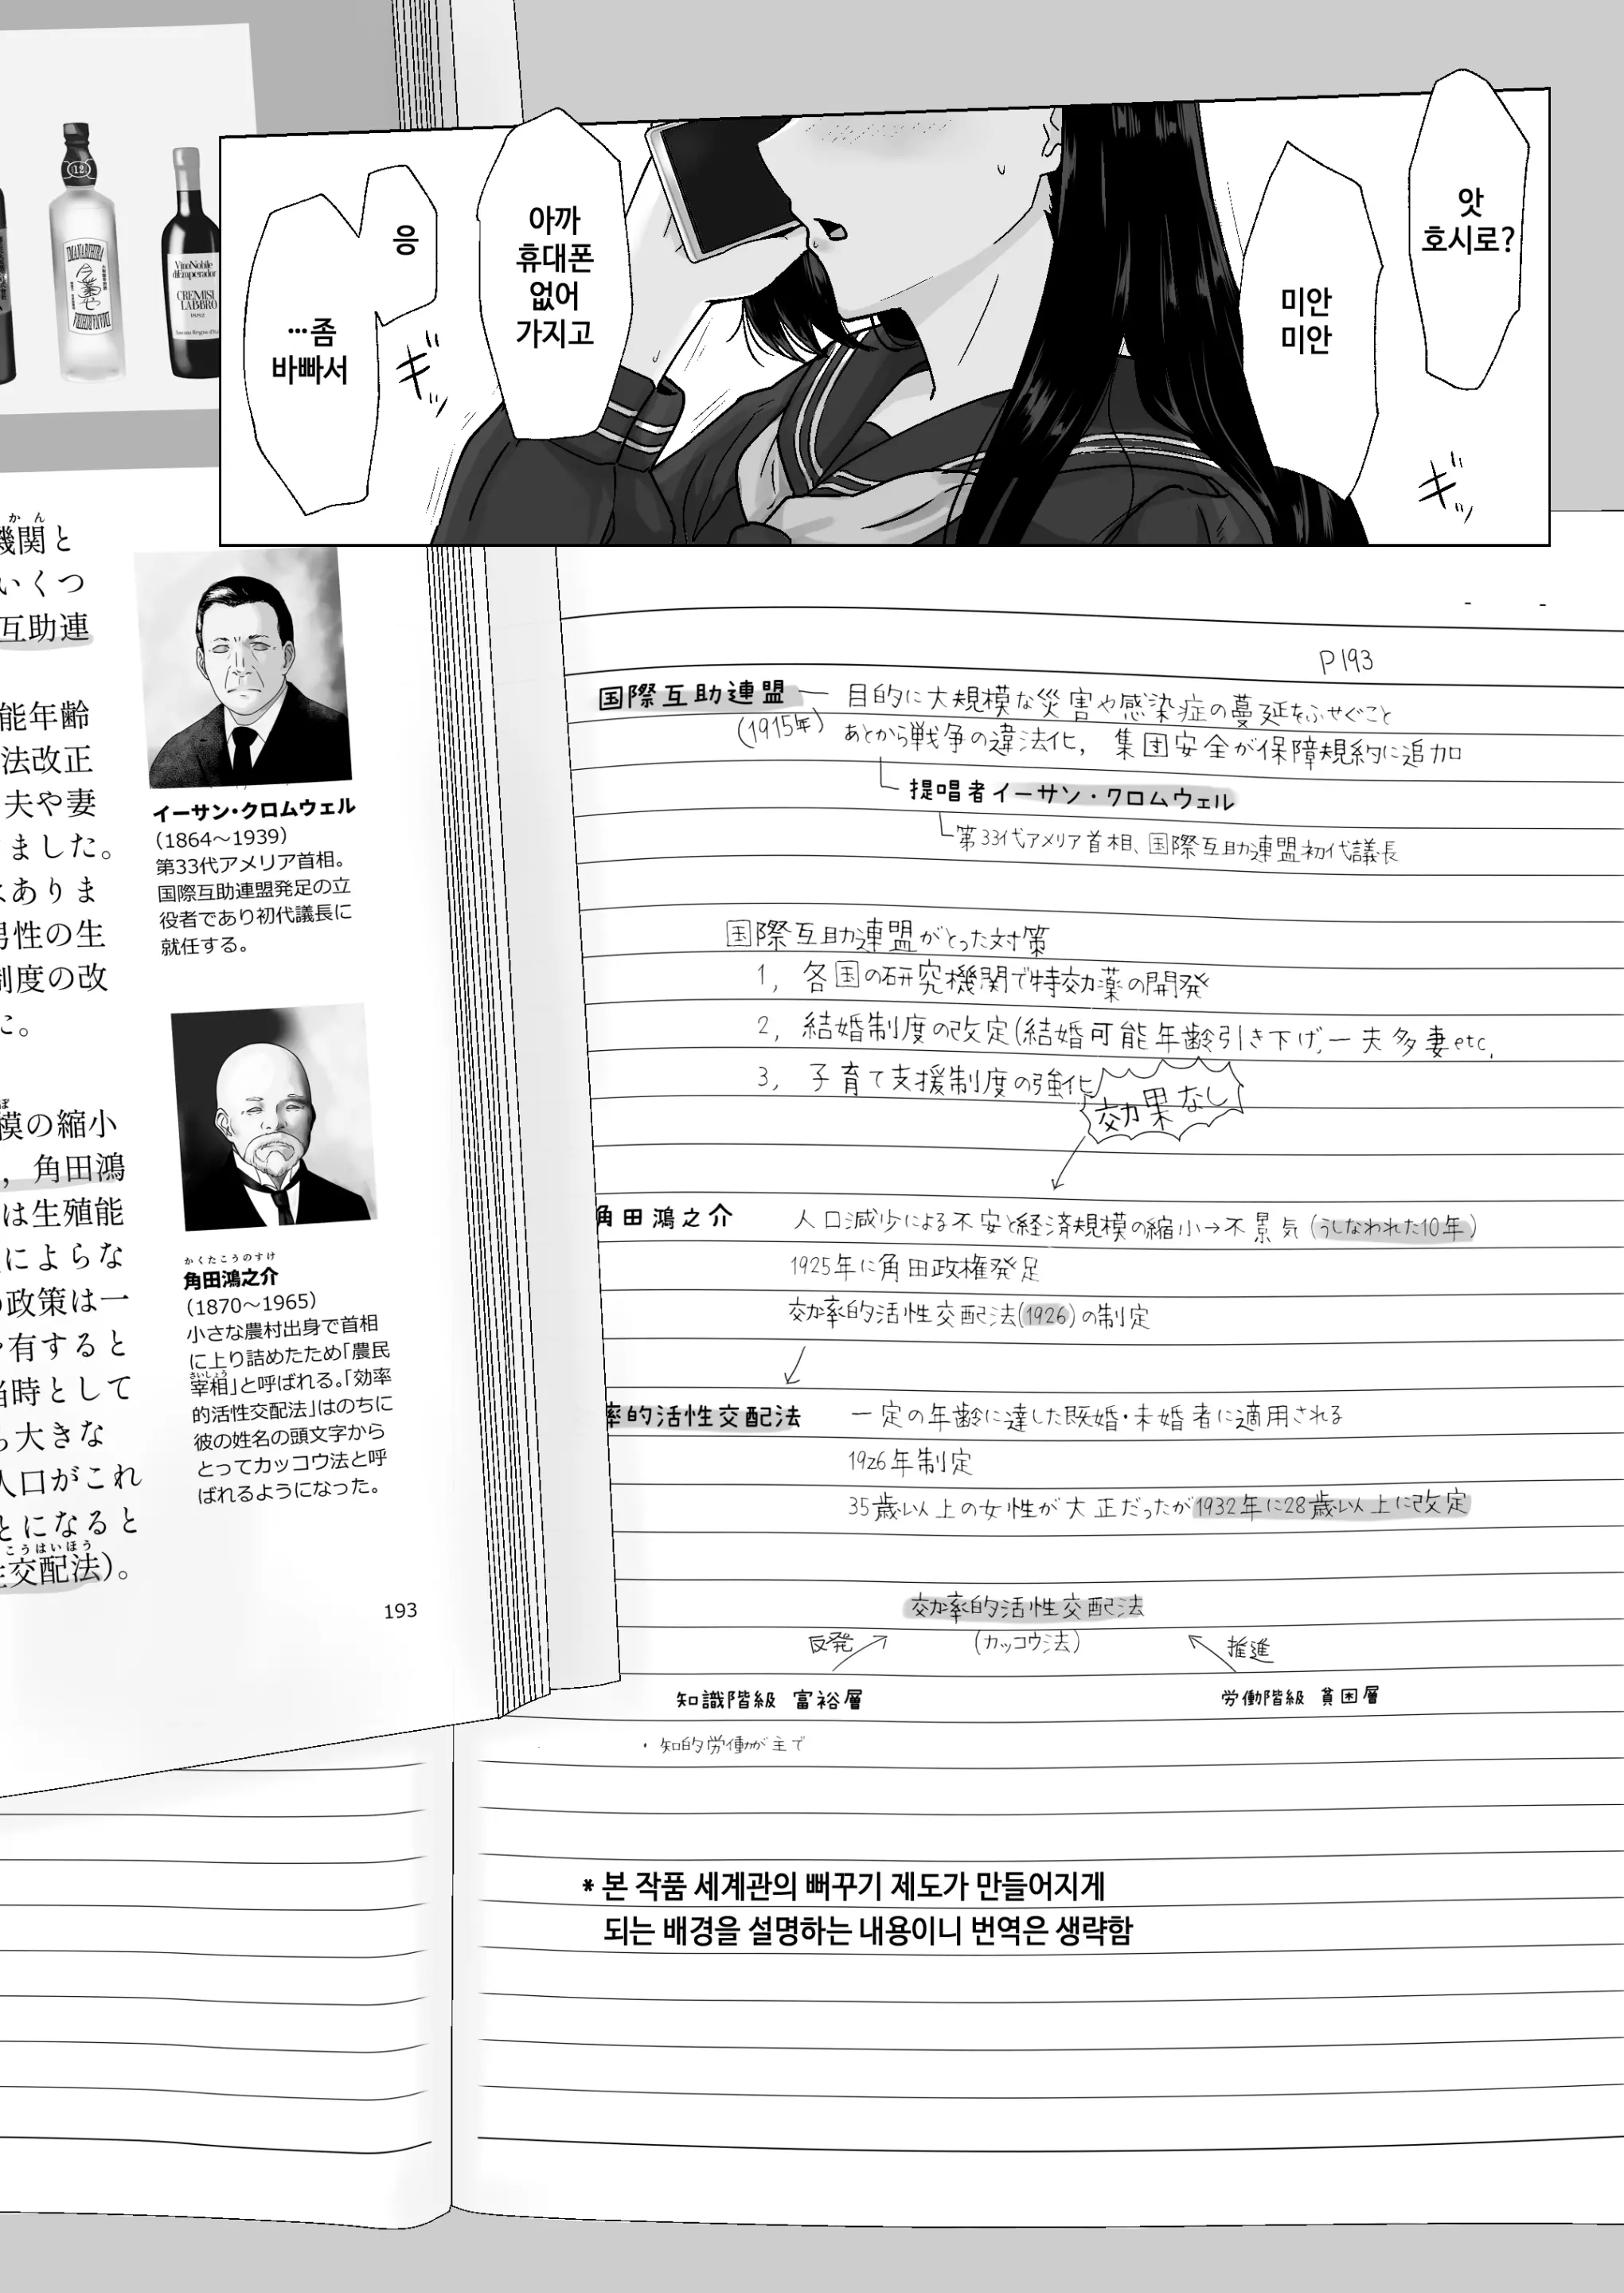 앗
호시로?
미안
미안
아까
휴대폰
없어
가지고
응
…좀
바빠서
ギッ
ギッ
12
VinoNobile
dEmperador
CREMISI
LABBRO
1882
かん
機関と
いくつ
互助連
能年齢
法改正
夫や妻
ました。
はありま
男性の生
制度の改
た。
ぼ
模の縮小
，角田鴻
は生殖能
によらな
の政策は一
有すると
当時として
ら大きな
人口がこれ
とになると
こうはいほう
性交配法）。
イーサン・クロムウェル
（1864〜1939）
第33代アメリア首相。
国際互助連盟発足の立
役者であり初代議長に
就任する。
かくたこうのすけ
角田鴻之介
（1870〜1965）
小さな農村出身で首相
に上り詰めたため「農民
さいしょう
宰相」と呼ばれる。「効率
的活性交配法」はのちに
彼の姓名の頭文字から
とってカッコウ法と呼
ばれるようになった。
193
P193
国際互助連盟 — 目的に大規模な災害や感染症の蔓延をふせぐこと
(1915年) あとから戦争の違法化, 集団安全が保障規約に追加
提唱者イーサン・クロムウェル
第33代アメリア首相、国際互助連盟初代議長
国際互助連盟がとった対策
1, 各国の研究機関で特効薬の開発
2, 結婚制度の改定(結婚可能年齢引き下げ,一夫多妻etc,
3, 子育て支援制度の強化
効果なし
角田鴻之介 人口減少による不安と経済規模の縮小→不景気 (うしなわれた10年)
1925年に角田政権発足
効率的活性交配法(1926)の制定
率的活性交配法 一定の年齢に達した既婚・未婚者に適用される
1926年制定
35歳以上の女性が大正だったが1932年に28歳以上に改定
効率的活性交配法
反発 (カッコウ法) 推進
知識階級 富裕層 労働階級 貧困層
・知的労働が主で
* 본 작품 세계관의 뻐꾸기 제도가 만들어지게
되는 배경을 설명하는 내용이니 번역은 생략함